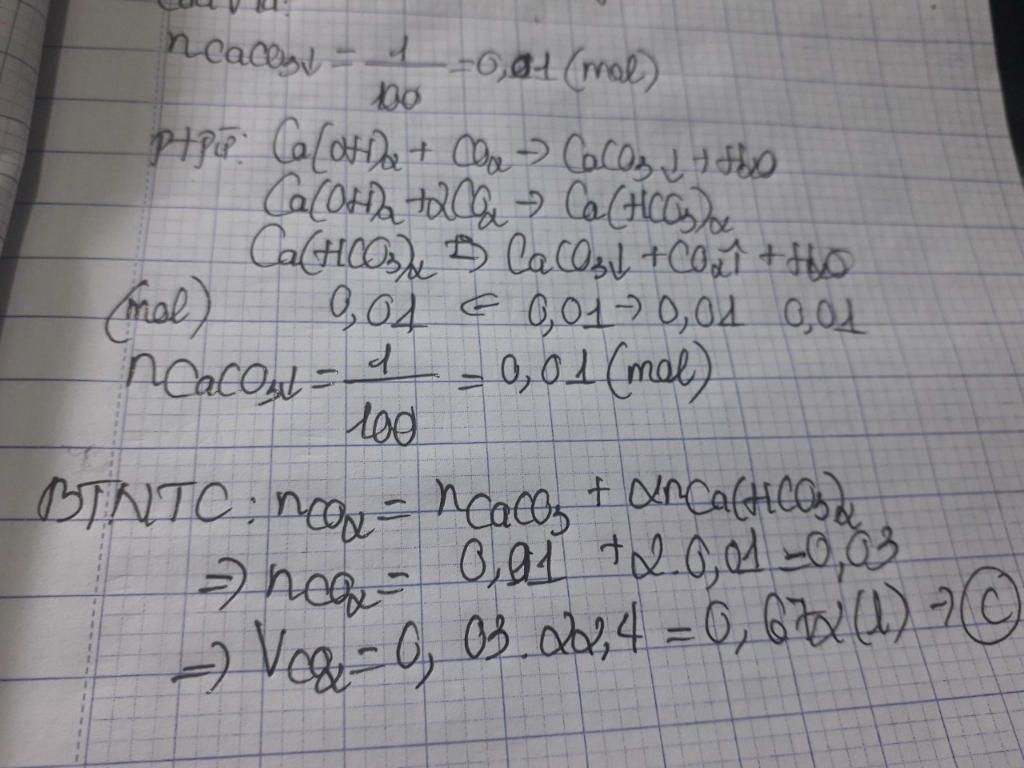 nCaCO₃↓ = 1/100 = 0,01 (mol)
ptpứ: Ca(OH)₂ + CO₂ → CaCO₃↓ + H₂O
Ca(OH)₂ + 2CO₂ → Ca(HCO₃)₂
Ca(HCO₃)₂ ⇒ CaCO₃↓ + CO₂↑ + H₂O
(mol) 0,01 ⇐ 0,01 → 0,01 0,01
nCaCO₃↓ = 1/100 = 0,01 (mol)
BTNTC: nCO₂ = nCaCO₃ + 2nCa(HCO₃)₂
⇒ nCO₂ = 0,01 + 2.0,01 = 0,03
⇒ VCO₂ = 0,03.22,4 = 0,672 (l) → C